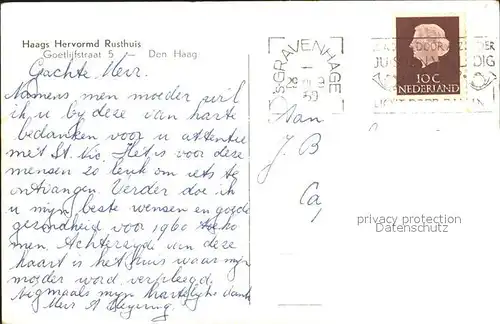 Haags Hervormd Rusthuis
Goetlijfstraat 5 — Den Haag
Geachte Heer.
Namens mijn moeder wil
ik u by deze van harte
bedanken voor u attentie
met St. Nic. Het is voor deze
mensen zo leuk om iets te
ontvangen. Verder doe ik
u mijn beste wensen en goede
gezondheid voor 1960 toeko
men. Achterzyde van deze
kaart is het huis waar myn
moeder word verpleegd.
Nogmaals mijn hartelijke dank
Heer A
'SGRAVENHAGE
10 C
NEDERLAND
Aan
J. B
privacy protection
Datenschutz